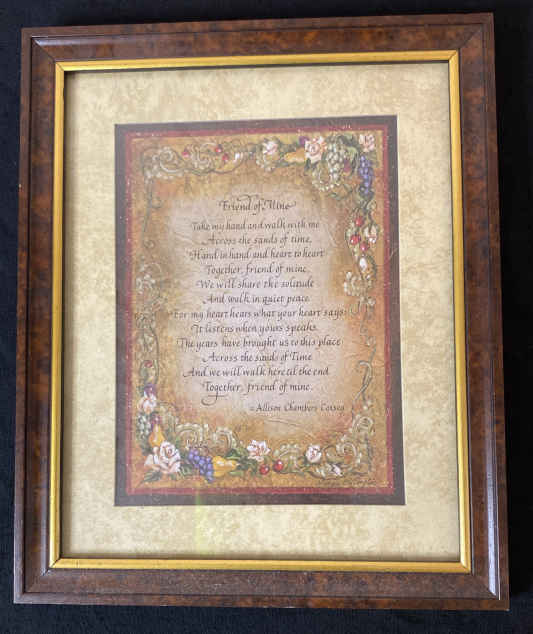 Friend of Mine
Take my hand and walk with me
Across the sands of time,
Hand in hand and heart to heart
Together, friend of mine.
We will share the solitude
And walk in quiet peace
For my heart hears what your heart says;
It listens when yours speaks.
The years have brought us to this place
Across the sands of Time
And we will walk here til the end
Together, friend of mine.
Allison Chambers Coxsey